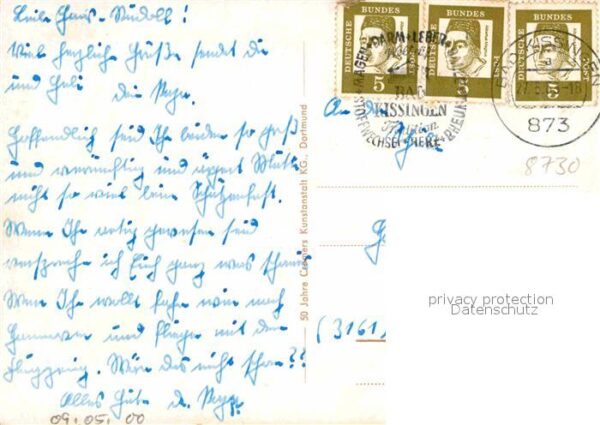 Liebe Hans-Rudolf!
Viel herzliche Grüße sendet die
und Heli die
Hoffentlich seid Ihr beiden so groß
und vernünftig und ärgert Mutti
nicht so viel beim Schützenfest.
Wenn Ihr artig gewesen seid
verspreche ich Euch ganz was schönes
Wenn Ihr wollt fahr wir nach
Hannover und fliege mit dem
Flugzeug. Wäre das nicht schön??
Alles Gute d.
09.05.00
50 Jahre Cramers Kunstanstalt KG., Dortmund
DEUTSCHE BUNDESPOST 5
DEUTSCHE BUNDESPOST 5
DEUTSCHE BUNDESPOST 5
MAGEN DARM LEBER
BAD
KISSINGEN
STOFFWECHSEL HERZ RHEUMA
BAD KISSINGEN
873
An
8730
(3161)
privacy protection
Datenschutz